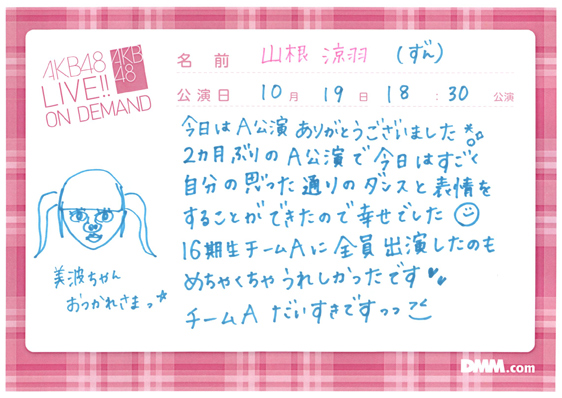 AKB48
LIVE!!
ON DEMAND
AKB
48
名 前 山根 涼羽 (ずん)
公演日 10月 19日 18:30 公演
今日はA公演ありがとうございました
2カ月ぶりのA公演で今日はすごく
自分の思った通りのダンスと表情を
することができたので幸せでした
16期生チームAに全員出演したのも
めちゃくちゃうれしかったです
チームA だいすきですっっ
美波ちゃん
おつかれさまっ
DMM.com